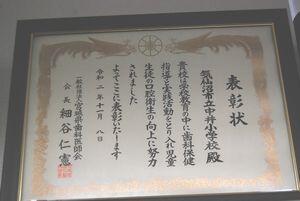 表彰状
気仙沼市立中井小学校 殿
貴校は学校教育の中に歯科保健
指導と実践活動をとり入れ児童
生徒の口腔衛生の向上に努力
されました
よってここに表彰いたします
令和二年十一月八日
一般社団法人宮城県歯科医師会
会長 細谷仁憲